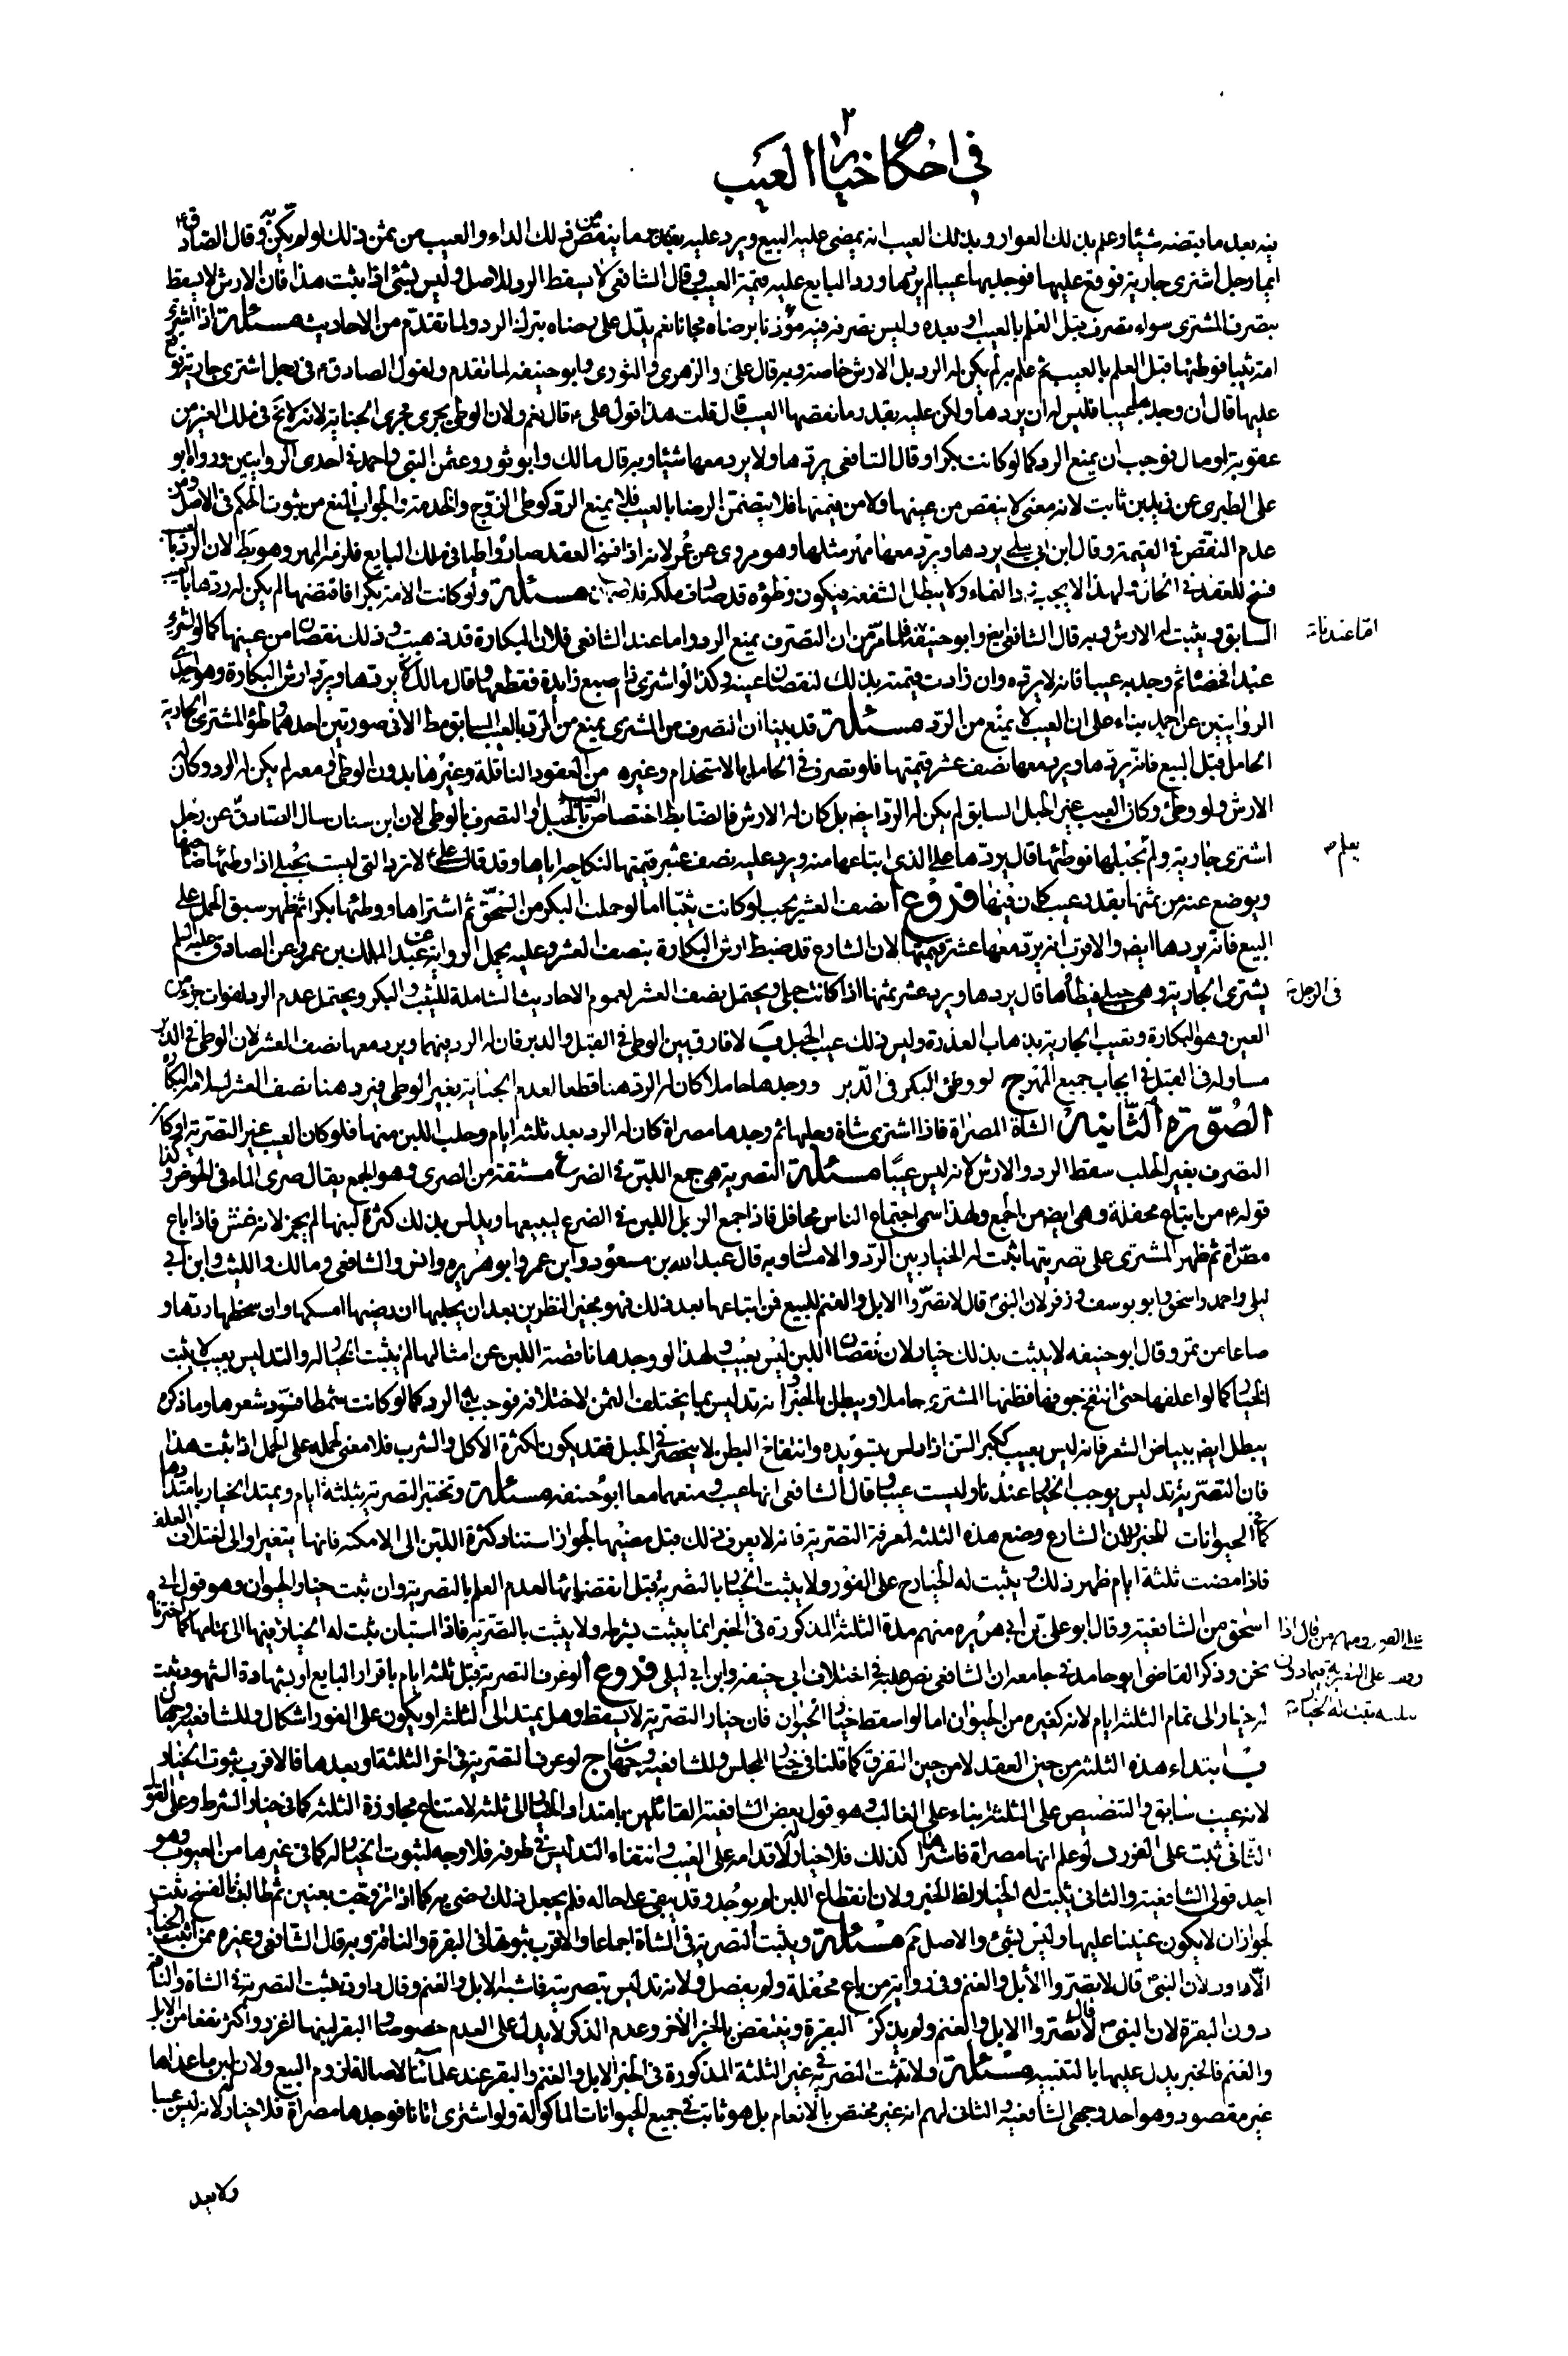 في احكام خيار العيب
فيه بعد ما قبضه شيئا وعلم بذلك العوار وبذلك العيب انه يمضى عليه البيع ويرد عليه بقدر ما ينقص من ذلك الداء والعيب من ثمن ذلك لو لم يكن به وقال الصادق ع
ايما رجل اشترى جارية فوقع عليها فوجد بها عيبا لم يردها ورد البايع عليه قيمة العيب وقال الشافعى لا يسقط الرد للاصل وليس بشئ اذا ثبت هذا فان الارش لا يسقط
بتصرف المشترى سواء تصرف قبل العلم بالعيب او بعده وليس تصرفه فيه مؤذنا برضاه مجانا نعم يدل على رضاه بترك الرد ولما تقدم من الاحاديث مسئلة اذا اشترى
امة ثيبا فوطئها قبل العلم بالعيب ثم علم به لم يكن له الرد بل الارش خاصة وبه قال على ع والزهرى والثورى وابو حنيفة لما تقدم ولقول الصادق ع فى رجل اشترى جارية فوقع
عليها قال ان وجد بها عيبا فليس له ان يردها ولكن عليه بقدر ما نقصها العيب قال قلت هذا قول على ع قال نعم ولان الوطى يجرى مجرى الجناية لانه لا يخ فى ملك الغير من
عقوبة او مال فوجب ان يمنع الرد كما لو كانت بكرا وقال الشافعى يردها ولا يرد معها شيئا وبه قال مالك وابو ثور وعثمن البتى واحمد فى احدى الروايتين ورواه ابو
على الطبرى عن زيد بن ثابت لانه معنى لا ينقص من عينها ولا من قيمتها فلا يتضمن الرضا بالعيب فلا يمنع الرد كوطى الزوج والخدمة والجواب المنع من ثبوت الحكم فى الاصل ومن
عدم النقص فى القيمة وقال ابن ابى ليلى يردها ويرد معها مهر مثلها وهو مروى عن عمر لانه اذا فسخ العقد صار واطيا فى ملك البايع فلزمه المهر وهو بط لان الرد بالعيب
فسخ للعقد فى الحال ولهذا لا يجب رد النماء ولا يبطل الشفعة فيكون وطؤه قد صادف ملكه مسئلة ولو كانت الامة بكرا فاقتضها لم يكن له ردها بالعيب
السابق ويثبت له الارش وبه قال الشافعى ايض وابو حنيفة اما عندنا فلما مر من ان التصرف يمنع الرد واما عند الشافعى فلان البكارة قد ذهبت وذلك نقصان من عينها كما لو اشترى
عبدا فخصاه ثم وجد به عيبا فانه لا يرده وان زادت قيمته بذلك لنقصان عينه وكذا لو اشترى ذا اصبع زايدة فقطعها وقال مالك يردها ويرد ارش البكارة وهو احدى
الروايتين عن احمد بناء على ان العيب لا يمنع من الرد مسئلة قد بينا ان التصرف من المشترى يمنع من الرد بالعيب السابق مطلا الا فى صورتين احدهما وطؤ المشترى الجارية
الحامل قبل البيع فانه يردها ويرد معها نصف عشر قيمتها فلو تصرف فى الحامل بالاستخدام وغيره من العقود الناقلة وغيرها بدون الوطى او معه لم يكن له الرد وكان
الارش ولو وطئ وكان العيب غير الحبل السابق لم يكن له الرد ايض بل كان له الارش فالضابط اختصاص العيب بالحبل والتصرف بالوطى لان ابن سنان سال الصادق ع عن رجل
اشترى جارية ولم يعلم بحبلها فوطئها قال يردها على الذى ابتاعها منه ويرد عليه نصف عشر قيمتها لنكاحه اياها وقد قال على ع لا ترد التى ليست بحبلى اذا وطئها صاحبها
ويوضع عنه من ثمنها بقدر عيب كان فيها فروع ا نصف العشر يجب لو كانت ثيبا اما لو حملت البكر من السحق ثم اشتراها ووطئها بكرا ثم ظهر سبق الحمل على
البيع فانه يردها ايض والاقرب انه يرد معها عشر قيمتها لان الشارع قد ضبط ارش البكارة بنصف العشر وعليه يحمل الرواية عن عبد الملك بن عمرو عن الصادق عليه السلم
فى الرجل يشترى الجارية وهى حبلى فيطأها قال يردها ويرد عشر ثمنها اذا كانت حبلى ويحتمل نصف العشر لعموم الاحاديث الشاملة للثيب والبكر ويحتمل عدم الرد لفوات جزء من
العين وهو البكارة وتعيب الجارية بذهاب العذرة وليس ذلك عيب الحبل ب لا فارق بين الوطى فى القبل والدبر فان له الرد فيهما ويرد معها نصف العشر لان الوطى فى الدبر
مساو له فى القبل فى ايجاب جميع المهر ج لو وطئ البكر فى الدبر ووجدها حاملا كان له الرد هنا قطعا لعدم الجناية بغير الوطى فيرد هنا نصف العشر لسلامة البكارة
الصورة الثانية الشاة المصراة فاذا اشترى شاة وحلبها ثم وجدها مصراة كان له الرد بعد ثلثة ايام وحلب اللبن منها فلو كان العيب غير التصرية او كان
التصرف بغير الحلب سقط الرد والارش لانه ليس عيبا مسئلة التصرية هى جمع اللبن فى الضرع مشتقة من الصرى وهو الجمع يقال صرى الماء فى الحوض وكذا
قوله ع من ابتاع محفلة وهى ايض من الجمع ولهذا سمى اجتماع الناس محافل فاذا جمع الرجل اللبن فى الضرع ليبيعها ويدلس بذلك كثرة لبنها لم يجز لانه غش فاذا باع
مصراة ثم ظهر المشترى على تصريتها ثبت له الخيار بين الرد والامساك وبه قال عبد الله بن مسعود وابن عمر وابو هريرة وانس والشافعى ومالك والليث وابن ابى
ليلى واحمد واسحق وابو يوسف وزفر لان النبى ص قال لا تصروا الابل والغنم للبيع فمن ابتاعها بعد ذلك فهو بخير النظرين بعد ان يحلبها ان رضيها امسكها وان سخطها ردها و
صاعا من تمر وقال ابو حنيفه لا يثبت بذلك خيار لان نقصان اللبن ليس بعيب ولهذا لو وجدها ناقصة اللبن عن امثالها لم يثبت الخيار له والتدليس بعيب لا يثبت
الخيار كما لو اعلفها حتى انتفخ جوفها فظنها المشترى حاملا ويبطل بالخبر ولانه تدليس بما يختلف الثمن لاختلافه فوجب به الرد كما لو كانت شمطا فسود شعرها وما ذكره
يبطل ايض ببياض الشعر فانه ليس بعيب ككبر السن اذا دلس بتسويده وانتفاخ البطن لا ينحصر فى الحبل فقد يكون لكثرة الاكل والشرب فلا معنى لحمله على الحمل اذا ثبت هذا
فان التصرية تدليس يوجب الخيار عندنا وليست عيبا وقال الشافعى انها عيب ومنعهما معا ابو حنيفه مسئلة وتختبر التصرية بثلثة ايام ويمتد الخيار بامتدادها
كما فى الحيوانات للخبر لان الشارع وضع هذه الثلثة لمعرفة التصرية فانه لا يعرف ذلك قبل مضيها لجواز استناد كثرة اللبن الى الامكنة فانها يتغير او الى اختلاف العلف
فاذا مضت ثلثة ايام ظهر ذلك ويثبت له الخيار ح على الفور ولا يثبت الخيار بالتصرية قبل انقضائها لعدم العلم بالتصرية وان ثبت خيار الحيوان وهو قول ابى
اسحق من الشافعية وقال ابو على بن ابى هريره منهم مدة الثلثة المذكورة فى الخبر انما يثبت بشرطه ولا يثبت بالتصرية فاذا استبان ثبت له الخيار فيها الى تمامها كما اخترناه
نحن وذكر القاضى ابو حامد فى جامعه ان الشافعى نص عليه فى اختلاف ابى حنيفه وابن ابى ليلى فروع ا لو عرف التصرية قبل ثلثه ايام باقرار البايع او بشهادة الشهود ثبت
له خيار الى تمام الثلثة ايام لانه كغيره من الحيوان اما لو اسقط خيار الحيوان فان خيار التصرية لا يسقط وهل يمتد الى الثلثة او يكون على الفور اشكال وللشافعية وجهان
ب ابتداء هذه الثلثة من حين العقد لا من حين التفرق كما قلنا فى خيار المجلس وللشافعية وجهان ج لو عرف التصرية فى اخر الثلثة او بعدها فالاقرب ثبوت الخيار
لانه عيب سابق والتنصيص على الثلثة بناء على الغالب وهو قول بعض الشافعية القائلين بامتداد الخيار الى ثلثه لامتناع مجاوزة الثلثه كما فى خيار الشرط وعلى القول
الثانى ثبت على الفور د لو علم انها مصراة فاشتراها كذلك فلا خيار له لاقدامه على العيب وانتفاء التدليس فى طرفه فلا وجه لثبوت الخيار له كما فى غيرها من العيوب وهو
احد قولى الشافعية والثانى يثبت له الخيار لظ الخبر ولان انقطاع اللبن لم يوجد وقد يبقى على حاله فلم يجعل ذلك رضى به كما اذا تزوجت بعنين ثم طالبت الفسخ يثبت الخيار
لجواز ان لا يكون عنينا عليها وليس بشئ والاصل مم مسئلة ويثبت التصرية فى الشاة اجماعا والاقرب ثبوتها فى البقرة والناقة وبه قال الشافعى وغيره ممن اثبت
الا داود لان النبى ص قال لا تصروا الابل والغنم وفى رواية من باع محفلة ولم يفصل ولانه تدليس بتصرية فاشبه الابل والغنم وقال داود يثبت التصرية فى الشاة والناقة
دون البقرة لان النبى ص قال لا تصروا الابل والغنم ولم يذكر البقرة وينتقض بالخبر الآخر وعدم الذكر لا يدل على العدم خصوصا والبقر لبنها اغزر واكثر نفعا من الابل
والغنم فالخبر يدل عليها بالتنبيه مسئلة ولا تثبت التصرية فى غير الثلثة المذكورة فى الخبر الابل والغنم والبقر عند علمائنا لاصالة لزوم البيع ولان لبن ما عداها
غير مقصود وهو احد وجهى الشافعية والثانى لهم انه غير مختص بالانعام بل هو ثابت فى جميع الحيوانات الماكولة ولو اشترى اتانا فوجدها مصراة فلا خيار له لانه ليس عيبا
ولا يعد